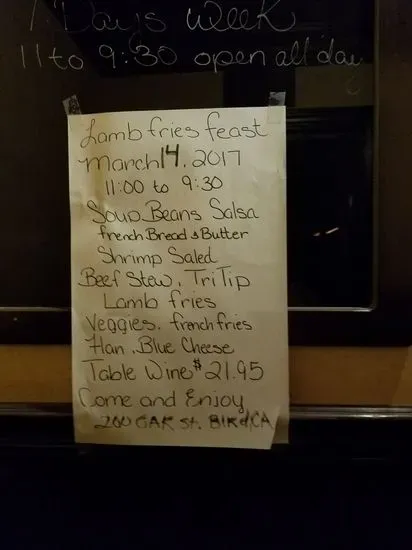 7 Days week
11 to 9:30 open all day
Lamb fries feast
March 14. 2017
11:00 to 9:30
Soup Beans Salsa
french Bread & Butter
Shrimp Saled
Beef Stew. Tri Tip
Lamb fries
Veggies. french fries
Flan. Blue Cheese
Table Wine $21.95
Come and Enjoy
200 OAK St. BIKd, CA